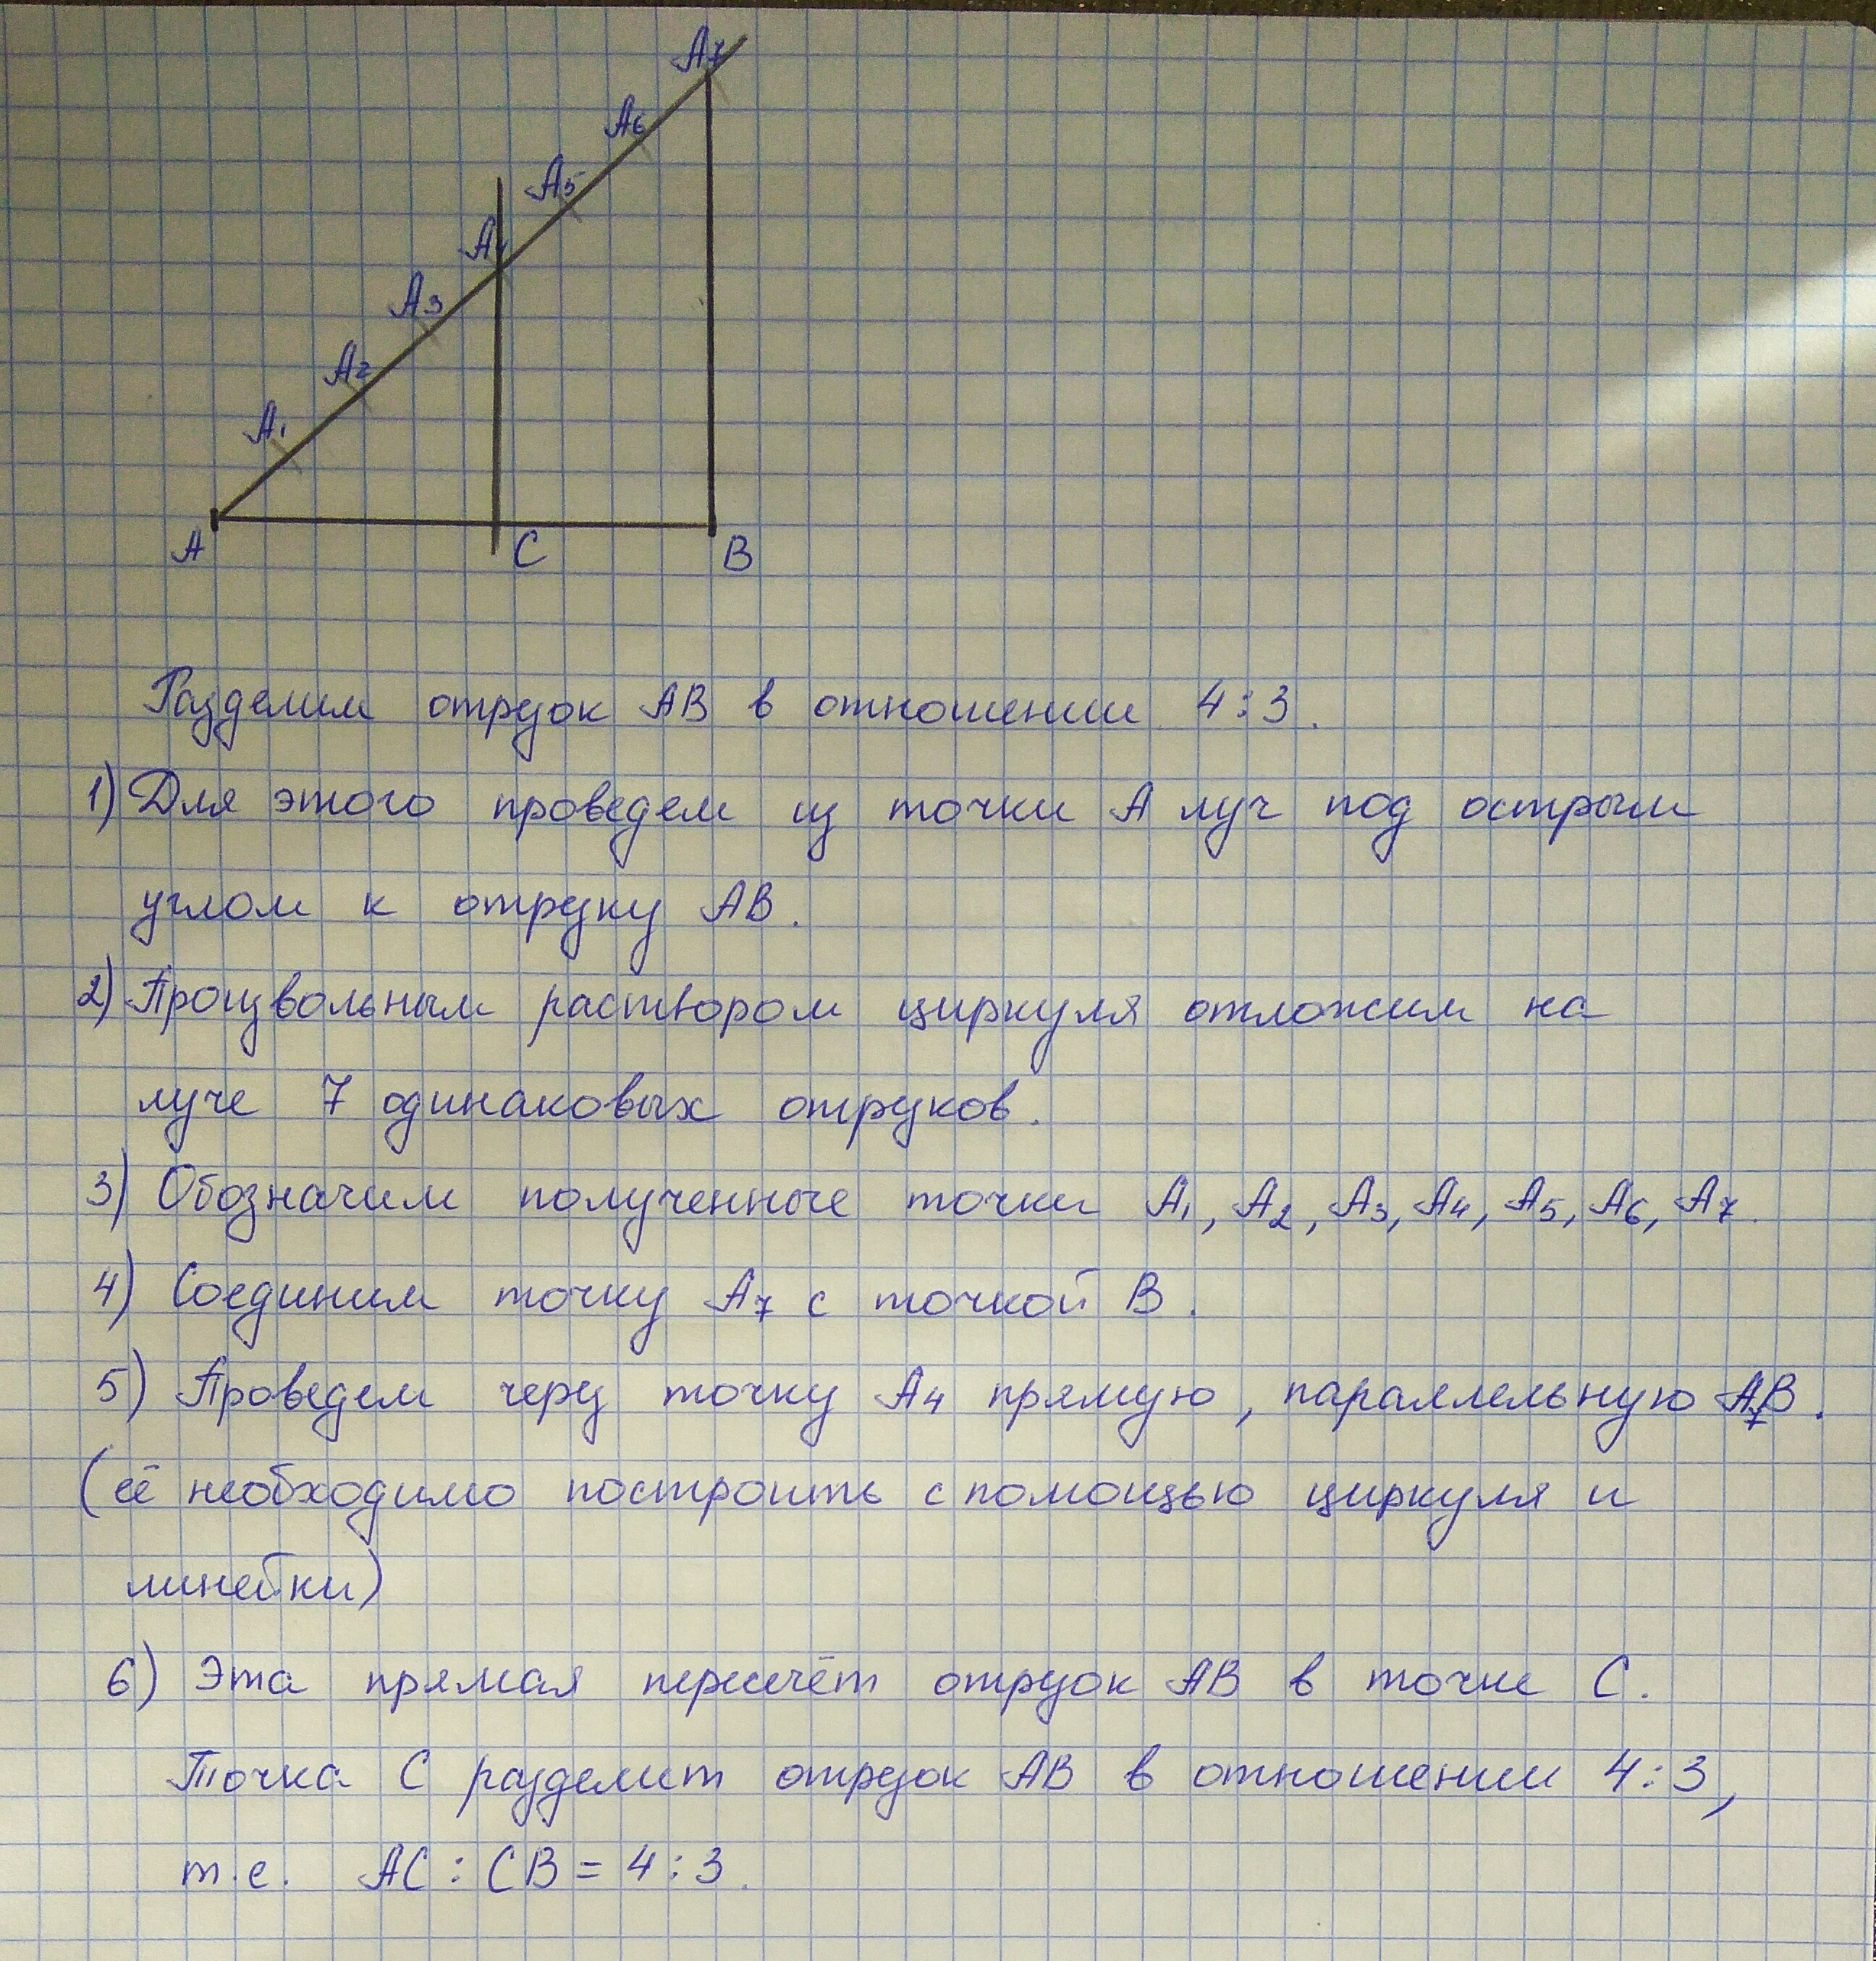 A7
A6
A5
A4
A3
A2
A1
A C B
Разделим отрезок AB в отношении 4:3.
1) Для этого проведем из точки A луч под острым
углом к отрезку AB.
2) Произвольным раствором циркуля отложим на
луче 7 одинаковых отрезков.
3) Обозначим полученные точки A1, A2, A3, A4, A5, A6, A7.
4) Соединим точку A7 с точкой B.
5) Проведем через точку A4 прямую, параллельную A7B.
(её необходимо построить с помощью циркуля и
линейки)
6) Эта прямая пересечёт отрезок AB в точке C.
Точка C разделит отрезок AB в отношении 4:3,
т.е. AC : CB = 4:3.